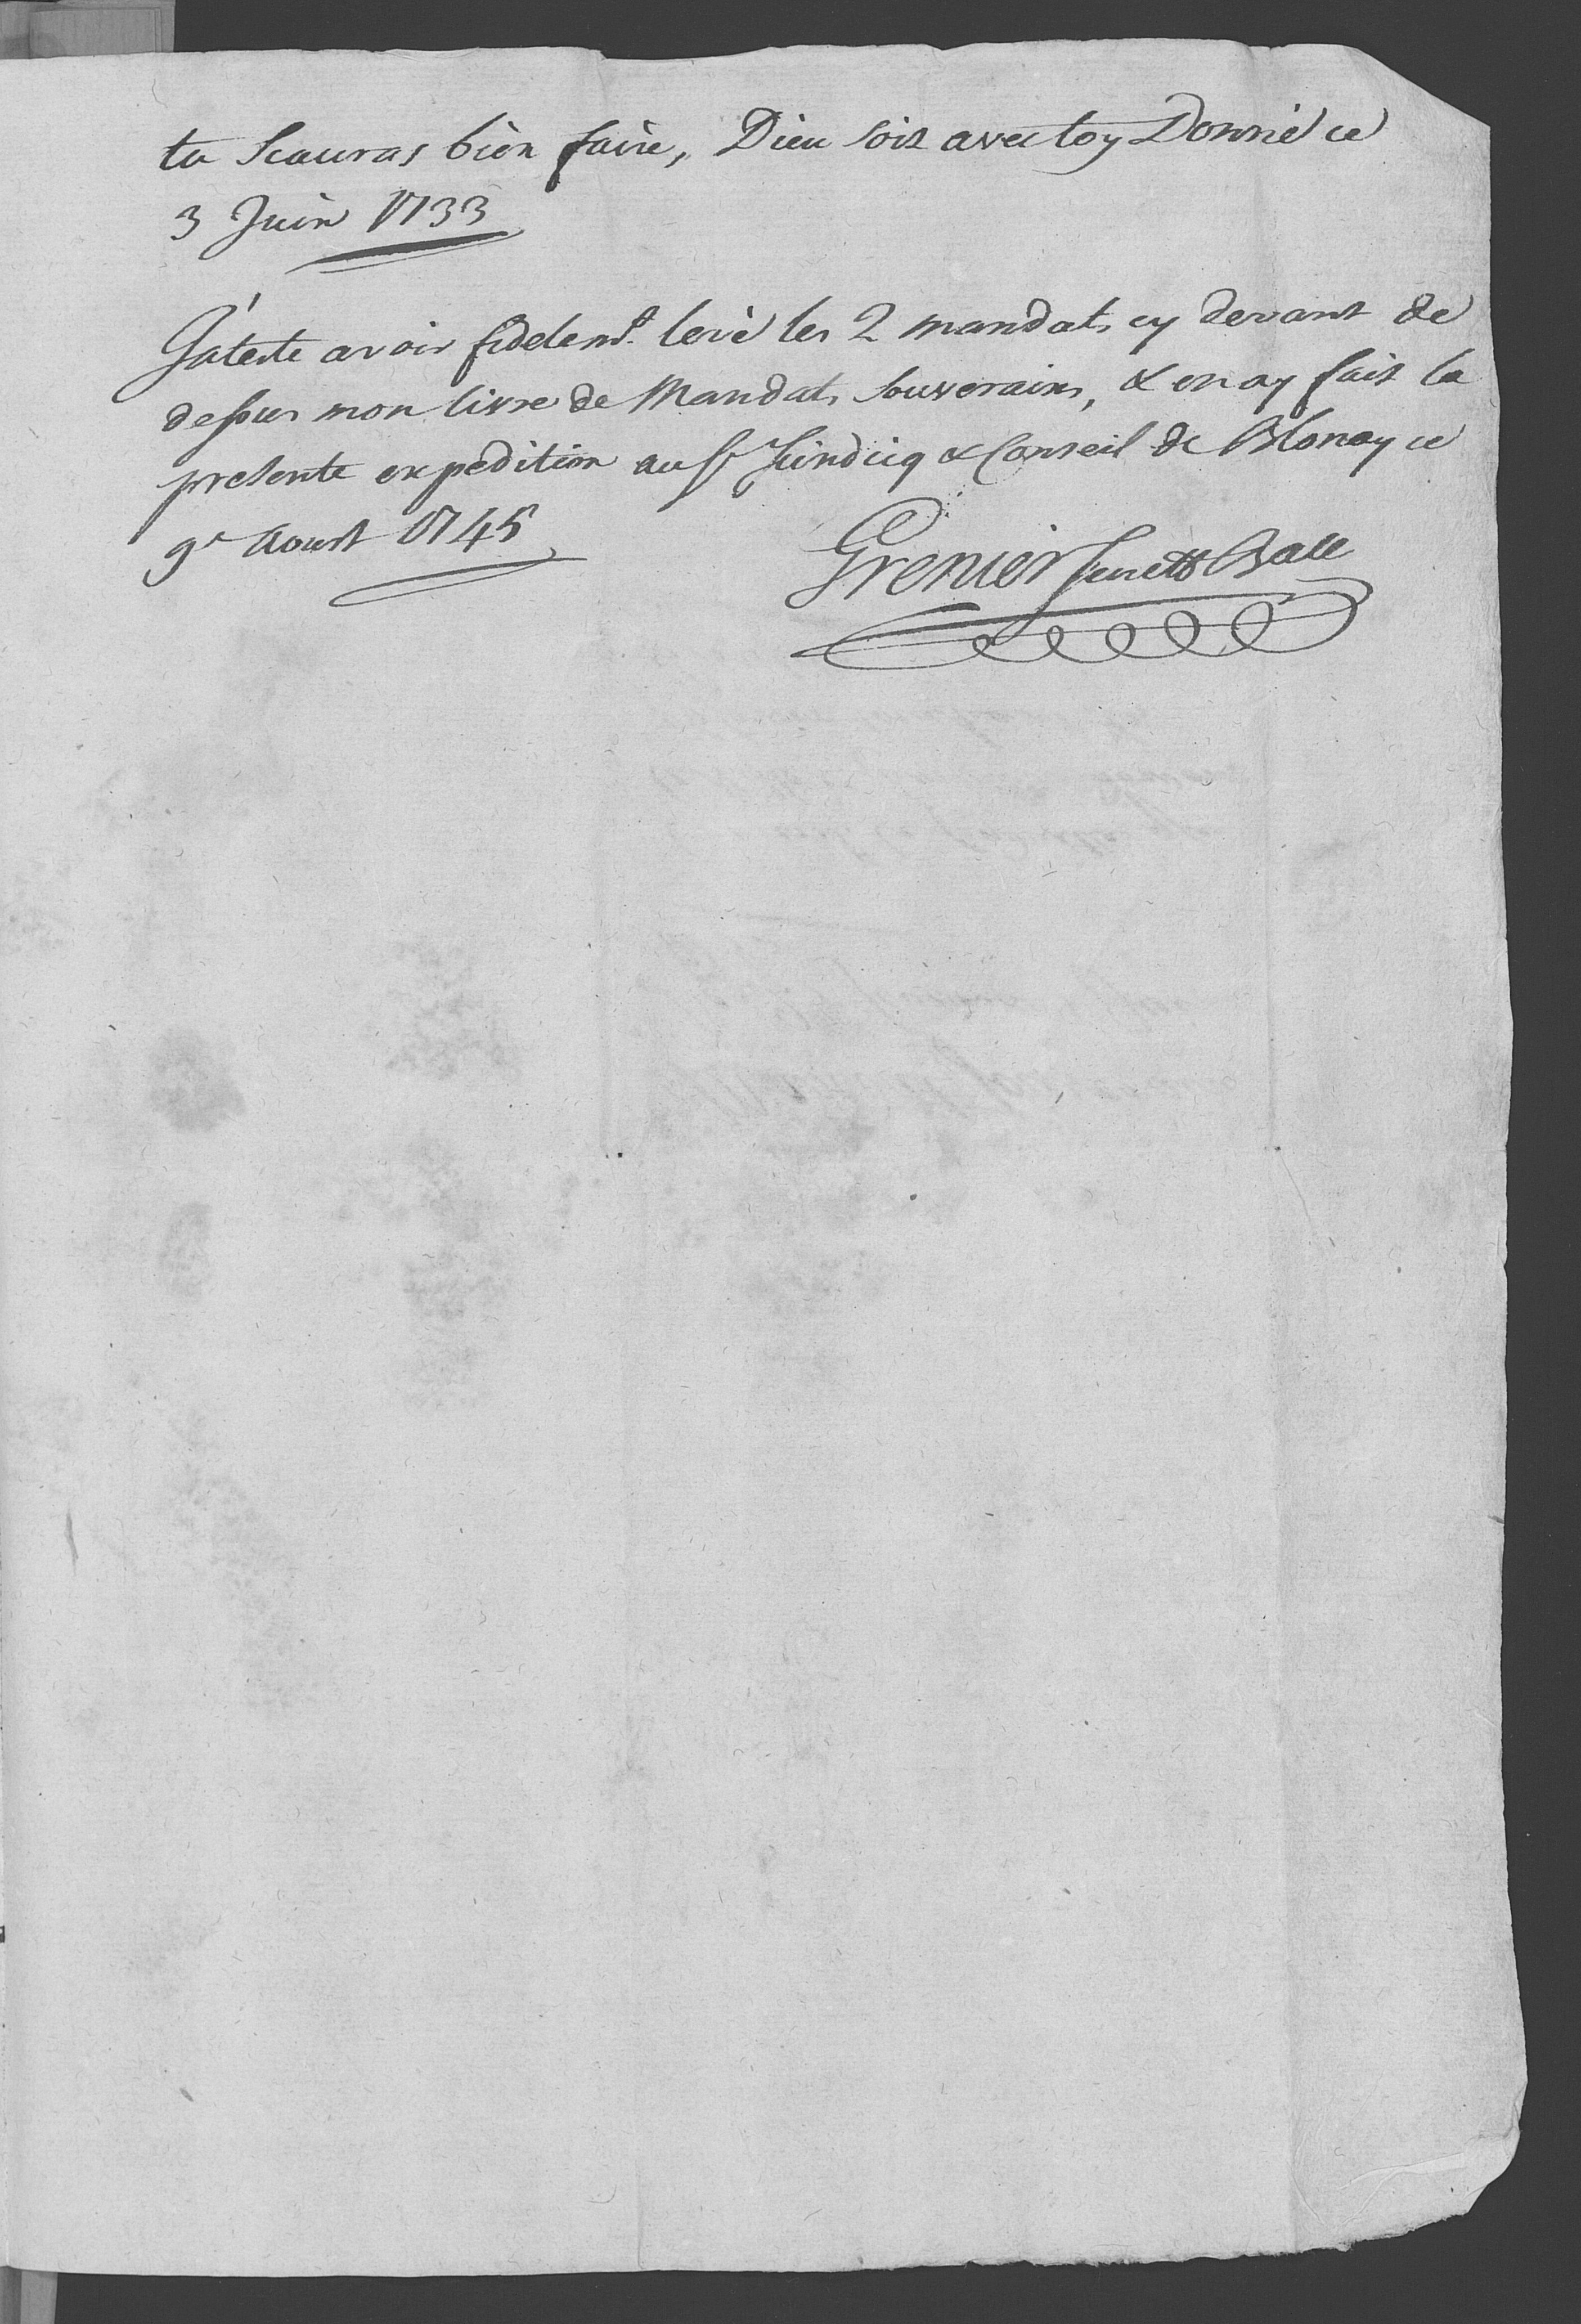 tu Scauras bien faire, Dieu soit avec toy Donné ce
3 Juin 1733
J'ateste avoir fidelem.t levé les 2 mandats cy devant de
dessus mon livre de Mandats Souverains, & en ay fait la
presente expedition au Sr Sindicq & Conseil de Blonay ce
9e Aoust 1745
Grenier